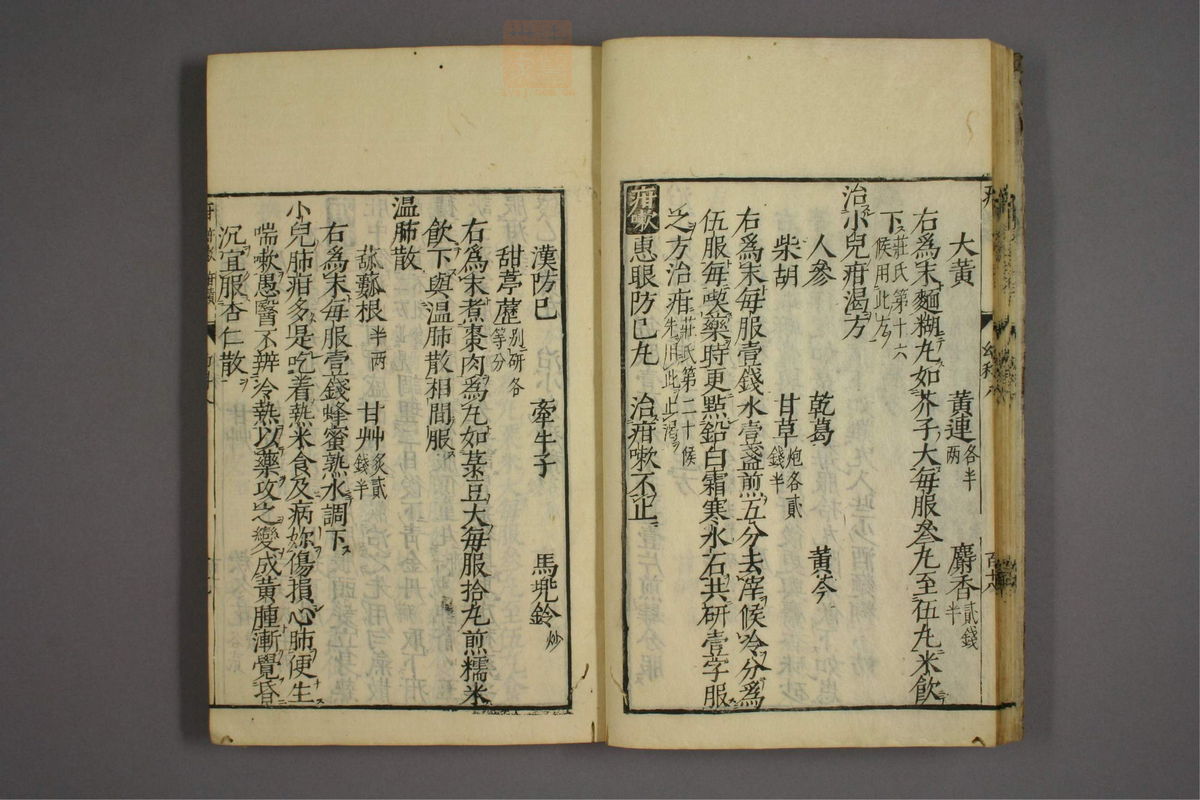 大黃　黃連各半兩　麝香貳錢半
右爲末麵糊丸如芥子大每服叄丸至伍丸米飲
下莊氏第十六候用此方
治小兒疳渴方
人參　乾葛　黃芩
柴胡　甘草炮各貳錢半
右爲末每服壹錢水壹盞煎五分去滓候冷分爲
伍服每喫藥時更點鉛白霜寒水石共研壹字服
之方治疳莊氏第二十候先用此止渴
疳嗽惠眼防巳丸　治疳嗽不止
漢防巳　牽牛子　馬兜鈴炒
甜葶藶別研各等分
右爲末煮棗肉爲丸如菉豆大每服拾丸煎糯米
飲下與温肺散相間服
温肺散
蓏蔞根半兩　甘艸炙貳錢半
右爲末每服壹錢蜂蜜熟水調下
小兒肺疳多是吃着熱米食及病妳傷損心肺便生
喘嗽愚醫不辨冷熱以藥攻之變成黃腫漸覺昏
沉宜服杏仁散